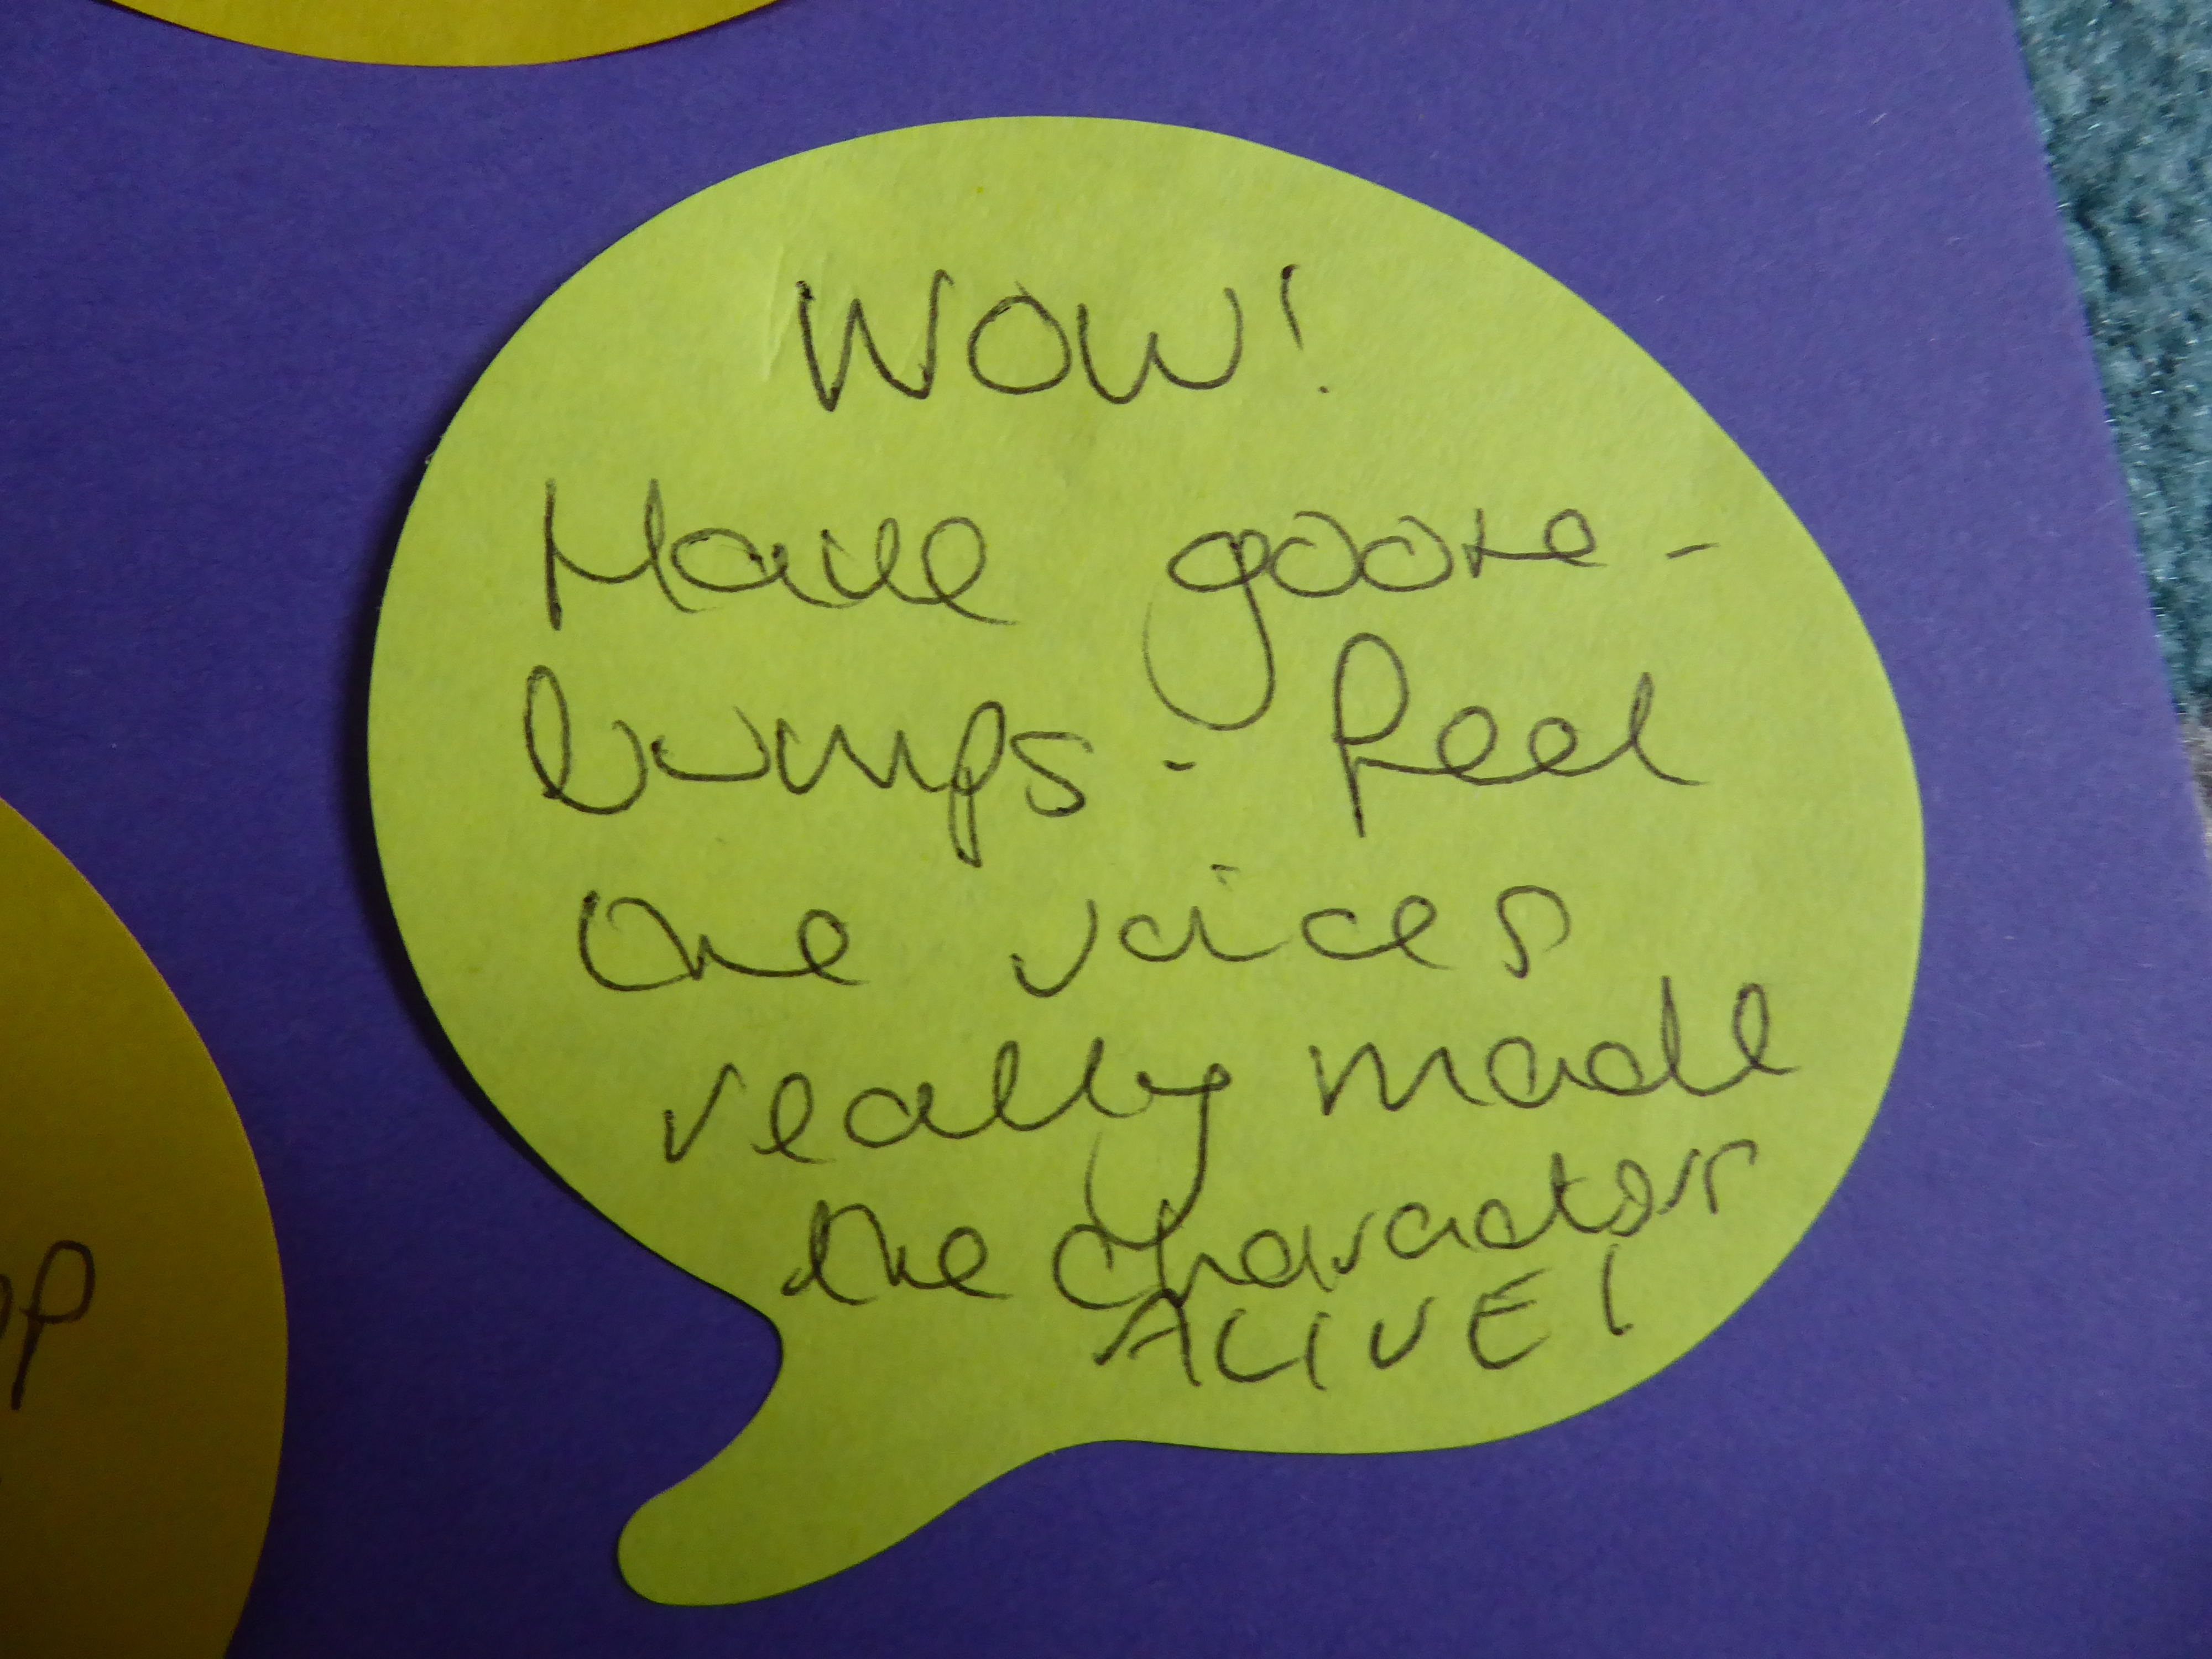 WOW!
Have goose-
bumps - feel
the voices
really made
the characters
ALIVE!
op